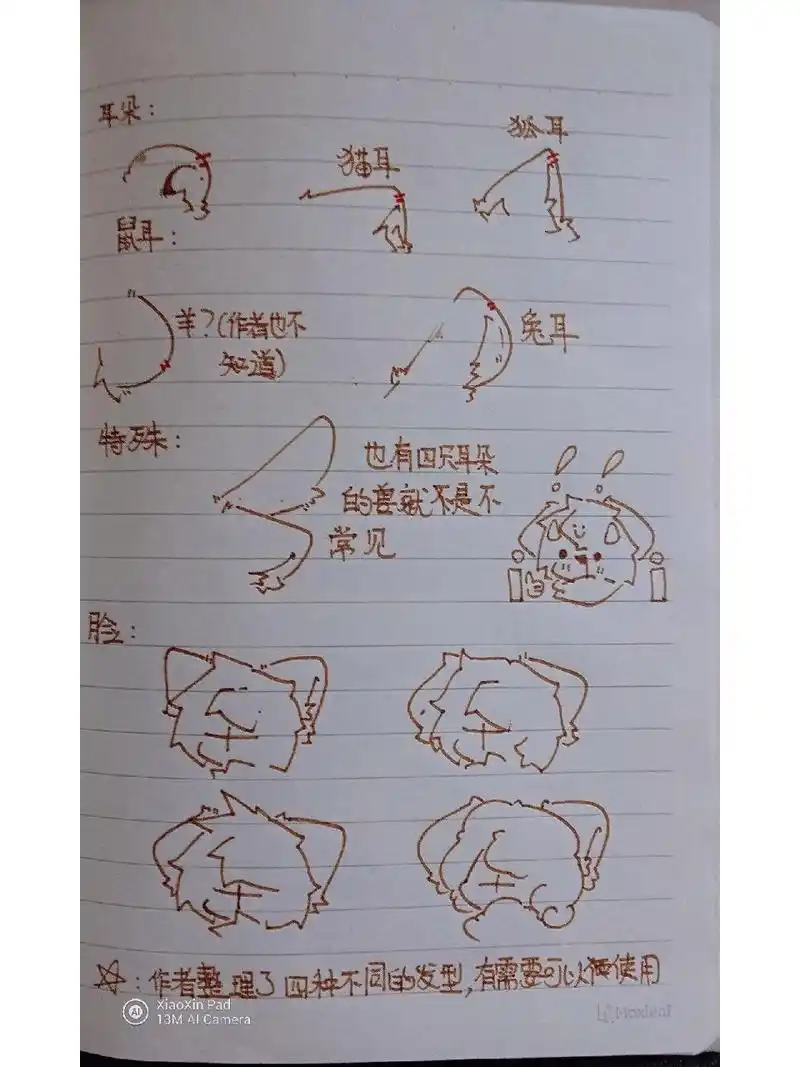 耳朵：
狐耳
猫耳
鼠耳：
羊？（作者也不
知道）
兔耳
特殊：
也有四只耳朵
的兽就不是不
常见
脸：
☆：作者整理了四种不同的发型，有需要可以使用
XiaoXin Pad
13M AI Camera
AI